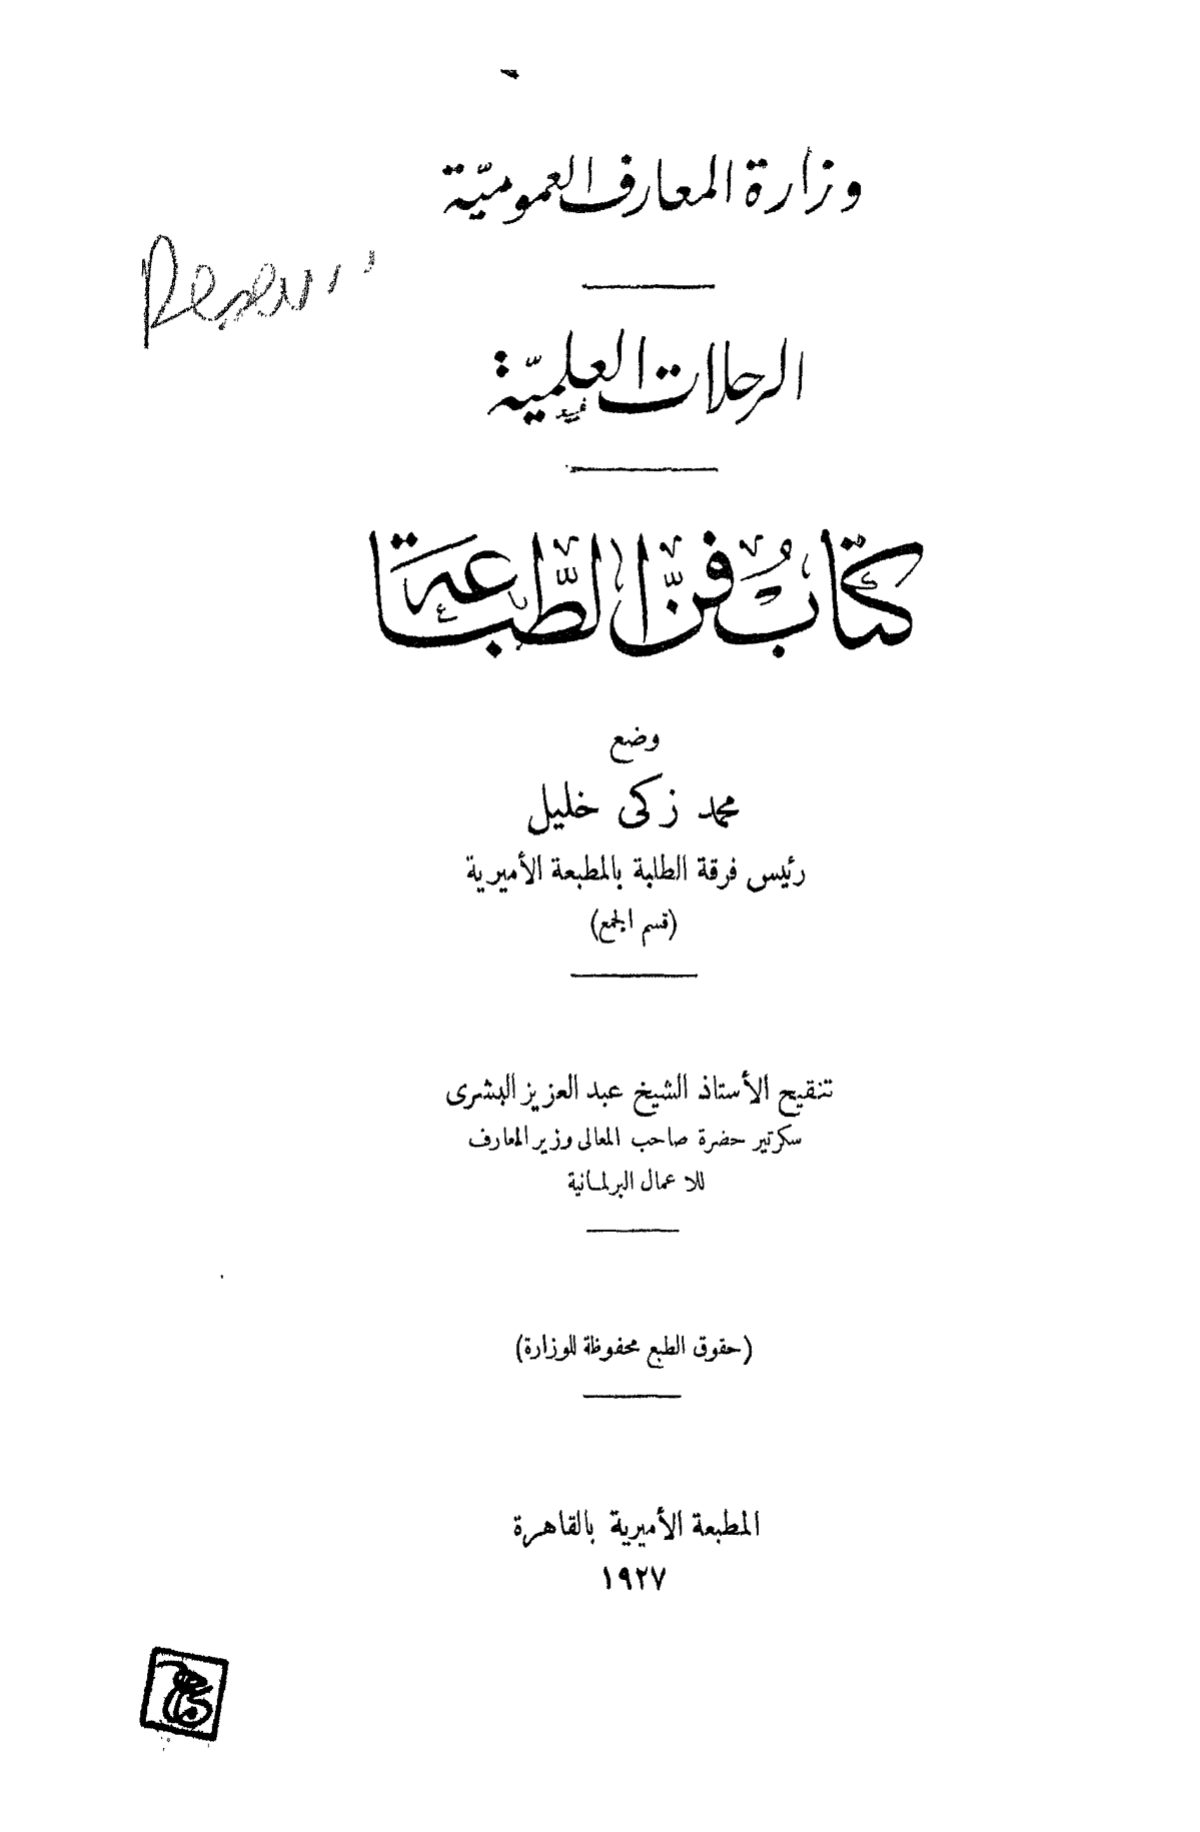 وزارة المعارف العمومیّة
الرحلات العلمیّة
كِتَابُ فَنِّ الطِّبَاعَة
وضع
محمد زكى خليل
رئيس فرقة الطلبة بالمطبعة الأميرية
(قسم الجمع)
تنقيح الأستاذ الشيخ عبد العزيز البشرى
سكرتير حضرة صاحب المعالى وزير المعارف
للاعمال البرلمانية
(حقوق الطبع محفوظة للوزارة)
المطبعة الأميرية بالقاهرة
١٩٢٧